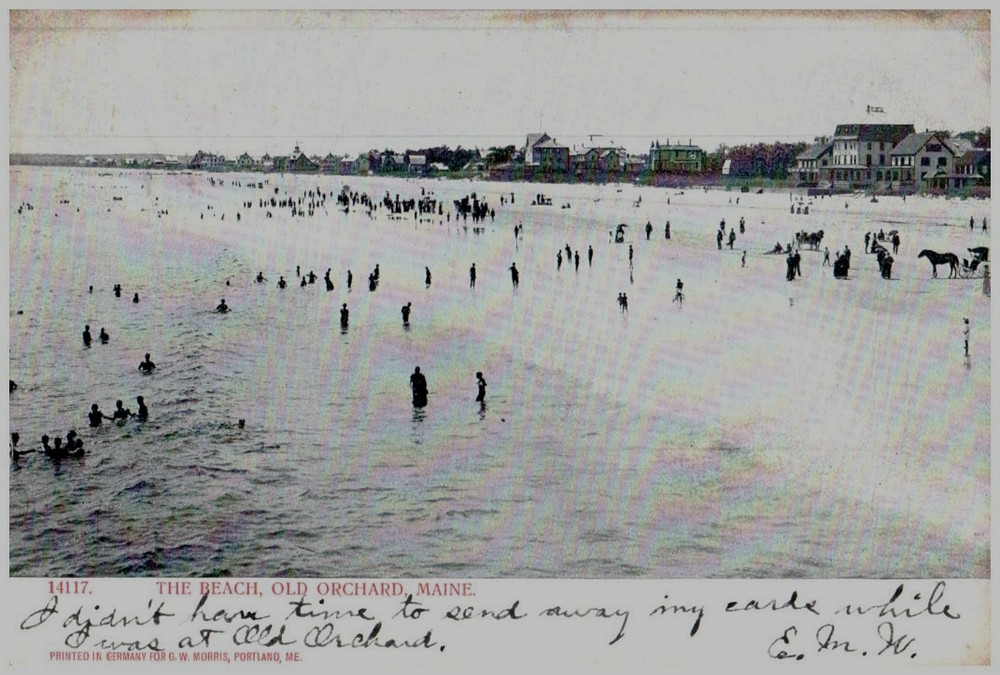 14117. THE BEACH, OLD ORCHARD, MAINE.
I didn't have time to send away my cards while
I was at Old Orchard. E. M. W.
PRINTED IN GERMANY FOR G. W. MORRIS, PORTLAND, ME.